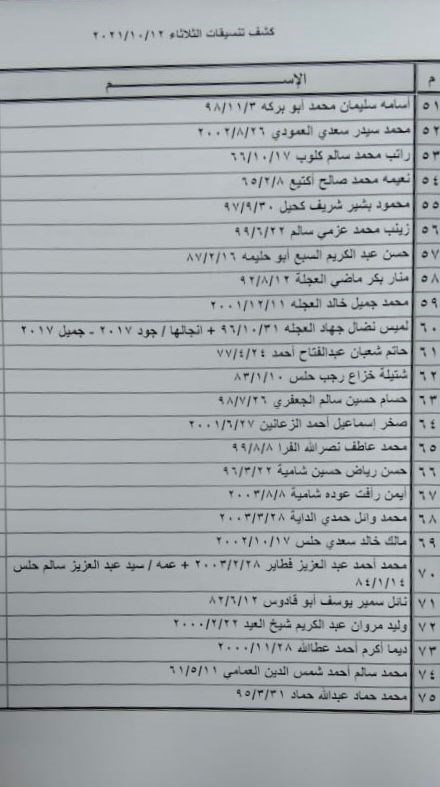 كشف تنسيقات الثلاثاء ٢٠٢١/١٠/١٢
م الإســـــــم
٥١ أسامه سليمان محمد أبو بركه ٩٨/١١/٣
٥٢ محمد سيدر سعدي العمودي ٢٠٠٢/٨/٢٦
٥٣ راتب محمد سالم كلوب ٦٦/١٠/١٧
٥٤ نعيمه محمد صالح أكتيع ٦٥/٢/٨
٥٥ محمود بشير شريف كحيل ٩٧/٩/٣٠
٥٦ زينب محمد عزمي سالم ٩٩/٦/٢٢
٥٧ حسن عبد الكريم السبع أبو حليمه ٨٧/٢/١٦
٥٨ منار بكر ماضي العجلة ٩٢/٨/١٢
٥٩ محمد جميل خالد العجله ٢٠٠١/١٢/١١
٦٠ لميس نضال جهاد العجله ٩٦/١٠/٣١ + انجالها / جود ٢٠١٧ - جميل ٢٠١٧
٦١ حاتم شعبان عبدالفتاح أحمد ٧٧/٤/٢٤
٦٢ شتيلة خزاع رجب حلس ٨٣/١/١٠
٦٣ حسام حسين سالم الجعفري ٩٨/٧/٢٦
٦٤ صخر إسماعيل أحمد الزعانين ٢٠٠١/٦/٢٧
٦٥ محمد عاطف نصرالله الفرا ٩٩/٨/٨
٦٦ حسن رياض حسين شامية ٩٦/٣/٢٢
٦٧ أيمن رأفت عوده شامية ٢٠٠٣/٨/٨
٦٨ محمد وائل حمدي الداية ٢٠٠٣/٣/٢٨
٦٩ مالك خالد سعدي حلس ٢٠٠٢/١٠/١٧
٧٠ محمد أحمد عبد العزيز فطاير ٢٠٠٣/٢/٢٨ + عمه / سيد عبد العزيز سالم حلس
٨٤/١/١٤
٧١ نائل سمير يوسف أبو قادوس ٨٢/٦/١٢
٧٢ وليد مروان عبد الكريم شيخ العيد ٢٠٠٠/٢/٢٢
٧٣ ديما أكرم أحمد عطاالله ٢٠٠٠/١١/٢٨
٧٤ محمد سالم أحمد شمس الدين العمامي ٦١/٥/١١
٧٥ محمد حماد عبدالله حماد ٩٥/٣/٣١